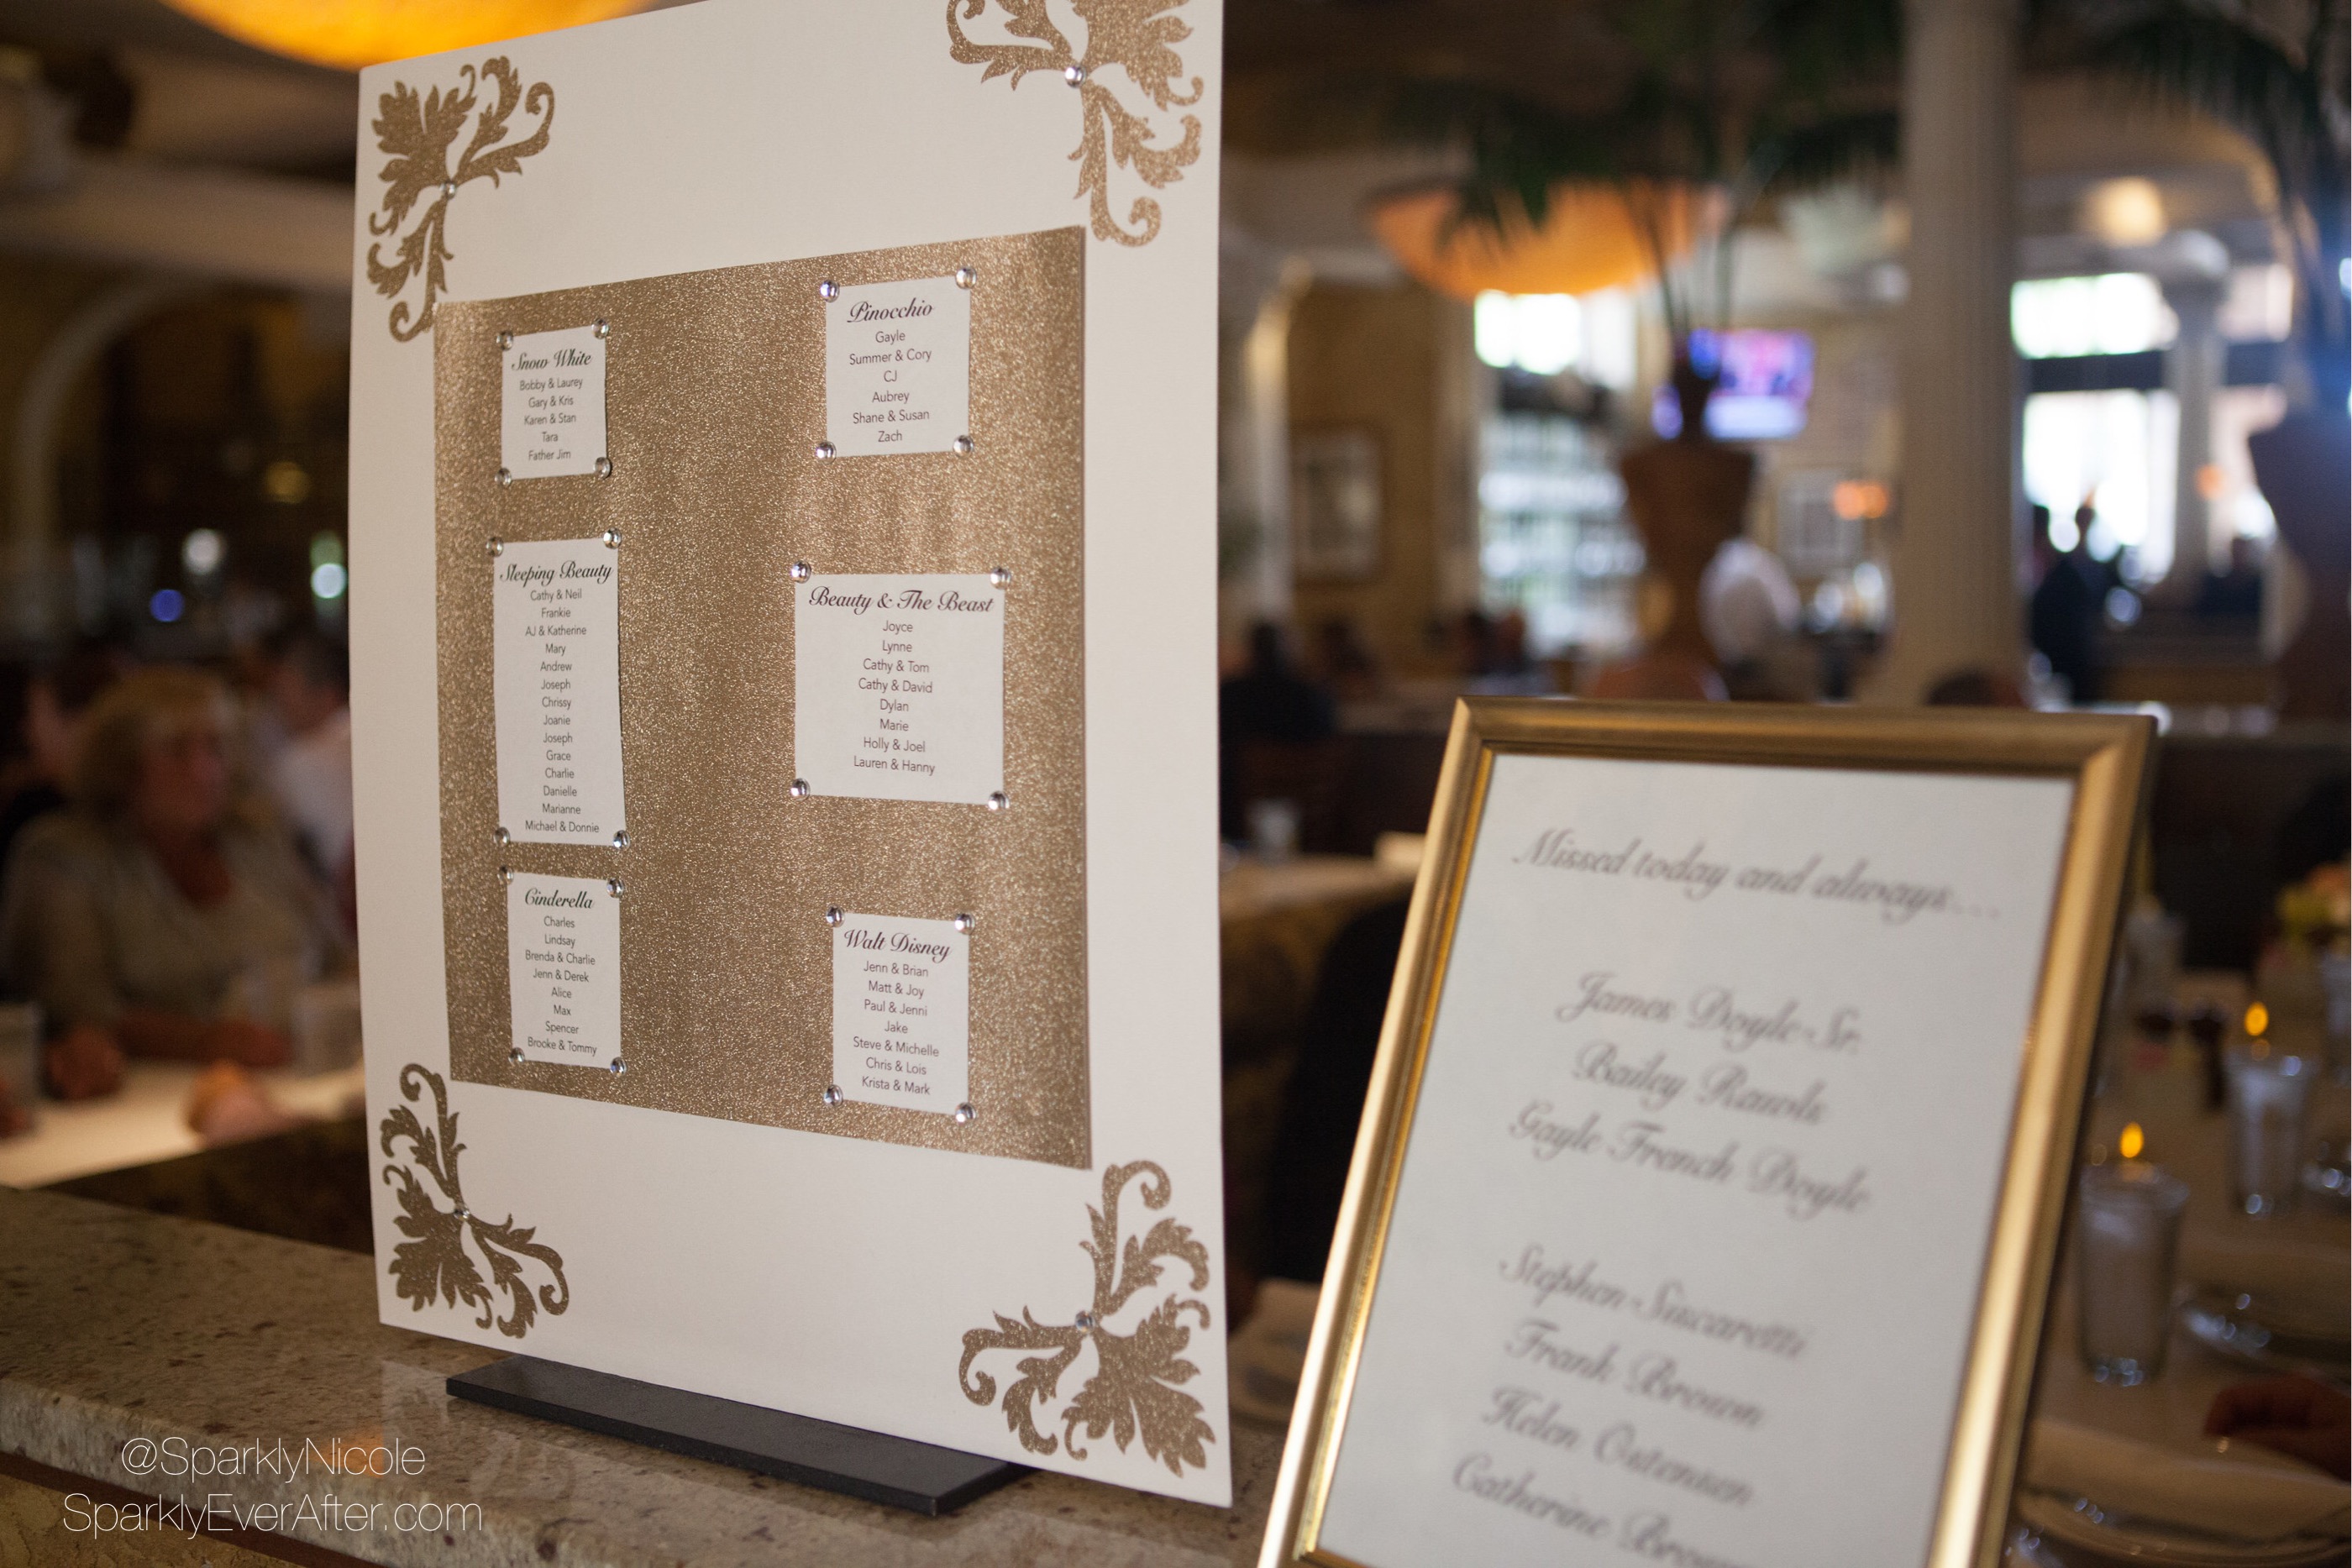 Snow White
Bobby & Laurey
Gary & Kris
Karen & Stan
Tara
Father Jim
Sleeping Beauty
Cathy & Neil
Frankie
AJ & Katherine
Mary
Andrew
Joseph
Chrissy
Joanie
Joseph
Grace
Charlie
Danielle
Marianne
Michael & Donnie
Cinderella
Charles
Lindsay
Brenda & Charlie
Jenn & Derek
Alice
Max
Spencer
Brooke & Tommy
Pinocchio
Gayle
Summer & Cory
CJ
Aubrey
Shane & Susan
Zach
Beauty & The Beast
Joyce
Lynne
Cathy & Tom
Cathy & David
Dylan
Marie
Holly & Joel
Lauren & Hanny
Walt Disney
Jenn & Brian
Matt & Joy
Paul & Jenni
Jake
Steve & Michelle
Chris & Lois
Krista & Mark
Missed today and always...
James Doyle Sr.
Bailey
Gayle French Doyle
Stephen
Frank Brown
Helen
Catherine
@SparklyNicole
SparklyEverAfter.com